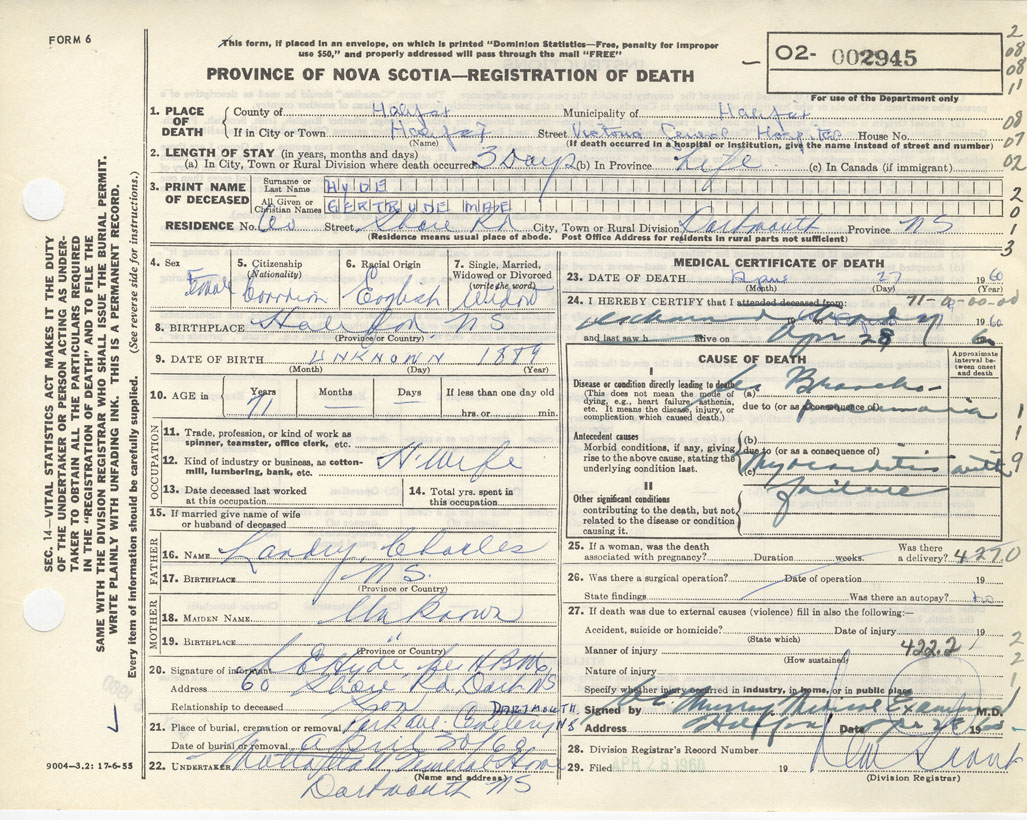 FORM 6
This form, if placed in an envelope, on which is printed "Dominion Statistics—Free, penalty for improper
use $50," and properly addressed will pass through the mail "FREE"
PROVINCE OF NOVA SCOTIA—REGISTRATION OF DEATH
O2- 002945
For use of the Department only
1. PLACE OF DEATH
County of Halifax Municipality of Halifax
If in City or Town Halifax Street Victoria General Hospital House No.
(Name) (If death occurred in a hospital or institution, give the name instead of street and number)
2. LENGTH OF STAY (in years, months and days)
(a) In City, Town or Rural Division where death occurred 3 Days (b) In Province Life (c) In Canada (if immigrant)
3. PRINT NAME OF DECEASED
Surname or Last Name HYDE
All Given or Christian Names GERTRUDE MAE
RESIDENCE No. 60 Street Shore Rd City, Town or Rural Division Dartmouth Province NS
(Residence means usual place of abode. Post Office Address for residents in rural parts not sufficient)
4. Sex Female
5. Citizenship (Nationality) Canadian
6. Racial Origin English
7. Single, Married, Widowed or Divorced (write the word) Widow
8. BIRTHPLACE Halifax NS
(Province or Country)
9. DATE OF BIRTH UNKNOWN 1889
(Month) (Day) (Year)
10. AGE in Years 71 Months — Days — If less than one day old
hrs. or min.
OCCUPATION
11. Trade, profession, or kind of work as spinner, teamster, office clerk, etc.
12. Kind of industry or business, as cotton-mill, lumbering, bank, etc. H. Wife
13. Date deceased last worked at this occupation
14. Total yrs. spent in this occupation
15. If married give name of wife or husband of deceased
FATHER
16. NAME Landry, Charles
17. BIRTHPLACE N.S.
(Province or Country)
MOTHER
18. MAIDEN NAME Unknown
19. BIRTHPLACE "
(Province or Country)
20. Signature of informant Hyde
Address 60 Shore Rd, Dart NS
Relationship to deceased Son
21. Place of burial, cremation or removal Cemetery, DARTMOUTH, NS
Date of burial or removal April 30/60
22. UNDERTAKER Funeral Home
(Name and address)
Dartmouth NS
9004—3.2: 17-6-55
SEC. 14—VITAL STATISTICS ACT MAKES IT THE DUTY
OF THE UNDERTAKER OR PERSON ACTING AS UNDER-
TAKER TO OBTAIN ALL THE PARTICULARS REQUIRED
IN THE "REGISTRATION OF DEATH" AND TO FILE THE
SAME WITH THE DIVISION REGISTRAR WHO SHALL ISSUE THE BURIAL PERMIT.
WRITE PLAINLY WITH UNFADING INK. THIS IS A PERMANENT RECORD.
Every item of information should be carefully supplied. (See reverse side for instructions.)
MEDICAL CERTIFICATE OF DEATH
23. DATE OF DEATH April 27 1960
(Month) (Day) (Year)
24. I HEREBY CERTIFY that I attended deceased from: 71-00-00-00
1960
and last saw h alive on Apr 28 60
CAUSE OF DEATH
Approximate interval between onset and death
I
Disease or condition directly leading to death
(This does not mean the mode of dying, e.g., heart failure, asthenia, etc. It means the disease, injury, or complication which caused death.)
(a) Broncho-
due to (or as a consequence of) pneumonia
Antecedent causes
Morbid conditions, if any, giving rise to the above cause, stating the underlying condition last.
(b)
due to (or as a consequence of)
(c) Myocarditis with
failure
II
Other significant conditions
contributing to the death, but not related to the disease or condition causing it.
25. If a woman, was the death associated with pregnancy? Duration weeks. Was there a delivery? 4270
26. Was there a surgical operation? Date of operation 19
State findings Was there an autopsy? no
27. If death was due to external causes (violence) fill in also the following:—
Accident, suicide or homicide? Date of injury 19
(State which)
Manner of injury 422.2
(How sustained)
Nature of injury
Specify whether injury occurred in industry, in home, or in public place
Signed by Murray Medical Examiner M.D.
Address Halifax Date Apr 28 1960
28. Division Registrar's Record Number
29. Filed APR 28 1960 19
(Division Registrar)
2
08
08
11
08
07
02
2
0
1
3
1
1
9
2
2
1